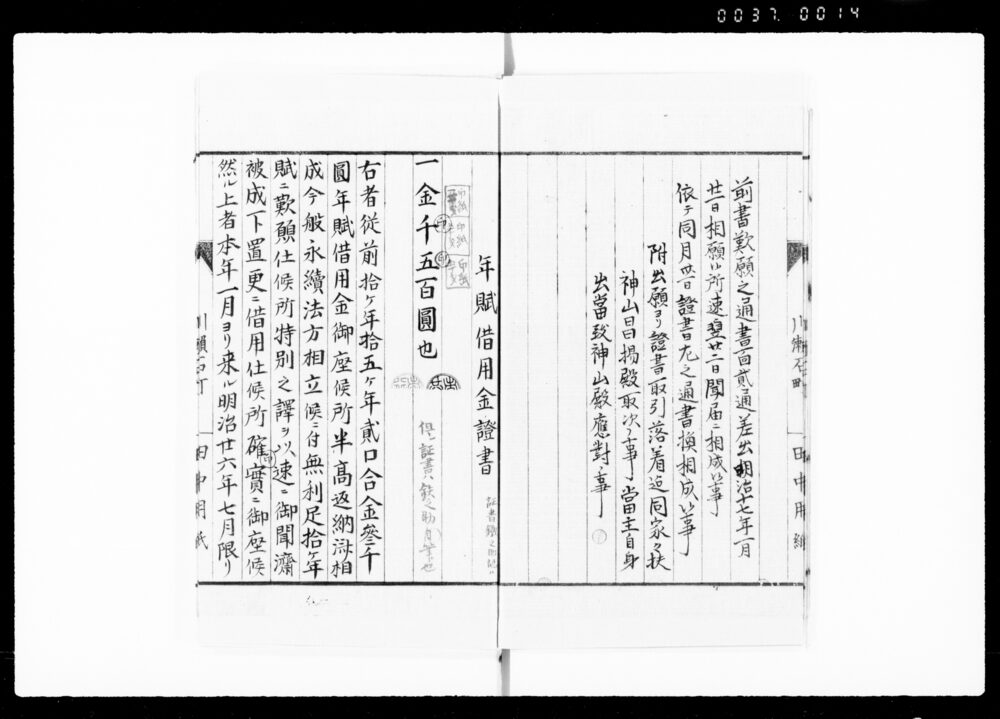 0037 0014
前書歎願之通書面貳通差出明治十七年一月
廿一日相願候所速翌廿二日聞届ニ相成候事
依テ同月 證書左之通書換相成候事
附出願ヨリ證書取引落着迄同家々扶
神山昌揚殿取次ノ事當主自身
出當致神山殿應對ノ事
年賦借用金證書
一金千五百圓也
但シ証書ハ鉄之助自筆也
右者従前拾ケ年拾五ケ年貳口合金參千
圓年賦借用金御座候所半高返納済相
成今般永續法方相立候ニ付無利足拾ケ年
賦ニ歎願仕候所特別之譯ヲ以速ニ御聞濟
被成下置更ニ借用仕候所確實ニ御座候
然ル上者本年一月ヨリ来ル明治廿六年七月限リ
田中用紙
田中用紙